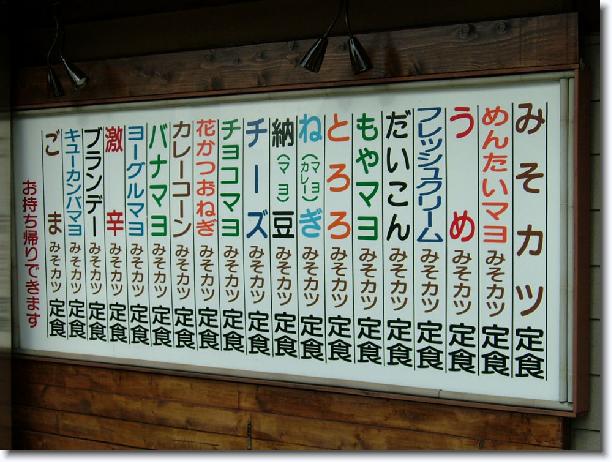 みそカツ定食
めんたいマヨみそカツ定食
うめみそカツ定食
フレッシュクリームみそカツ定食
だいこんみそカツ定食
もやマヨみそカツ定食
とろろみそカツ定食
ねぎ(マヨ)(カレー)みそカツ定食
納豆(マヨ)みそカツ定食
チーズみそカツ定食
チョコマヨみそカツ定食
花かつおねぎみそカツ定食
カレーコーンみそカツ定食
バナマヨみそカツ定食
ヨーグルマヨみそカツ定食
激辛みそカツ定食
ブランデーみそカツ定食
キューカンバマヨみそカツ定食
ごまみそカツ定食
お持ち帰りできます